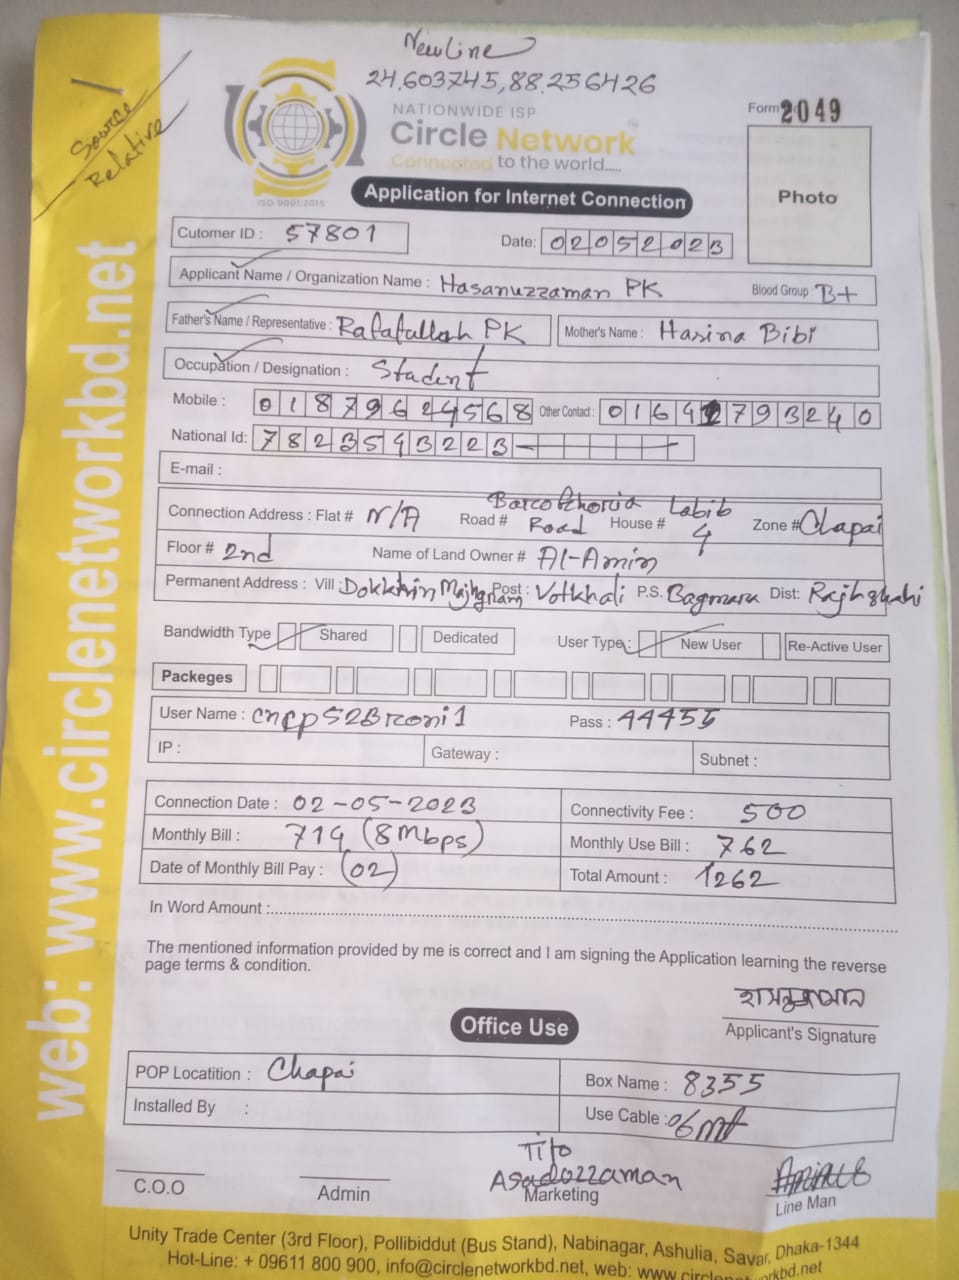 New Line
24.603745,88.256426
Source
Relative
NATIONWIDE ISP
Circle Network
Connected to the world.....
ISO 9001:2015
Form 2049
Photo
Application for Internet Connection
Cutomer ID : 57801
Date: 02052023
Applicant Name / Organization Name : Hasanuzzaman PK
Blood Group : B+
Father's Name / Representative : Rafatullah PK
Mother's Name : Hasina Bibi
Occupation / Designation : Student
Mobile : 01879624568
Other Contact : 01641793240
National Id: 7823543223
E-mail :
Connection Address : Flat # N/A Road # Road House # Labib 4 Zone # Chapai
Floor # 2nd Name of Land Owner # Al-Amin
Permanent Address : Vill : Dokkhin Majhgram Post : Votkhali P.S. Bagmara Dist: Rajhshahi
Bandwidth Type Shared Dedicated User Type : New User Re-Active User
Packeges
User Name : cncp52Broni1 Pass : 44455
IP : Gateway : Subnet :
Connection Date : 02-05-2023 Connectivity Fee : 500
Monthly Bill : 714 (8Mbps) Monthly Use Bill : 762
Date of Monthly Bill Pay : (02) Total Amount : 1262
In Word Amount :
The mentioned information provided by me is correct and I am signing the Application learning the reverse
page terms & condition.
হাসানুজ্জামান
Applicant's Signature
Office Use
POP Locatition : Chapai Box Name : 8355
Installed By : Use Cable : 06 mt
C.O.O
Admin
Tito
Asadozzaman
Marketing
Line Man
Unity Trade Center (3rd Floor), Pollibiddut (Bus Stand), Nabinagar, Ashulia, Savar, Dhaka-1344
Hot-Line: + 09611 800 900, info@circlenetworkbd.net, web: www.circlenetworkbd.net
web: www.circlenetworkbd.net